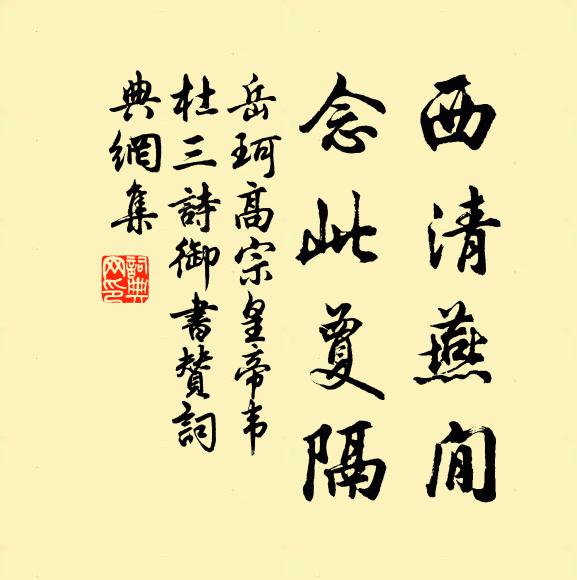 西清燕閒
念此戛隔
岳珂高宗皇帝韦
杜三詩御書贊詞
典網集
詞典網印